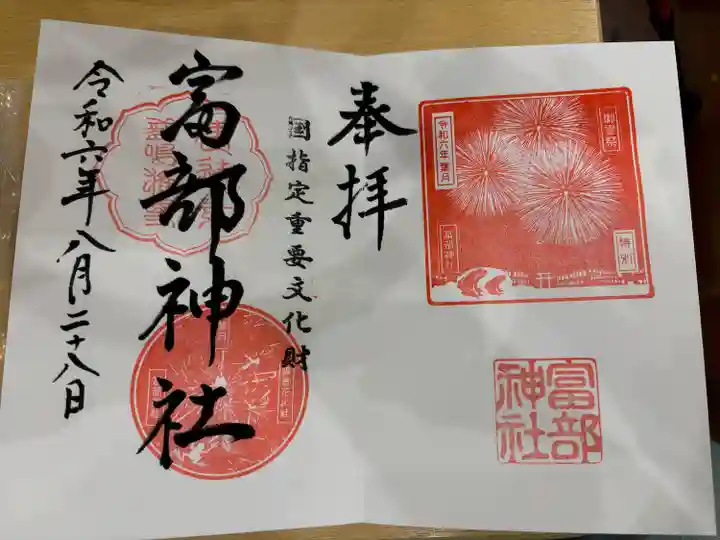 御霊祭
特別
令和六年 葉月
富部神社
奉拝
国指定重要文化財
富部神社
令和六年八月二十八日